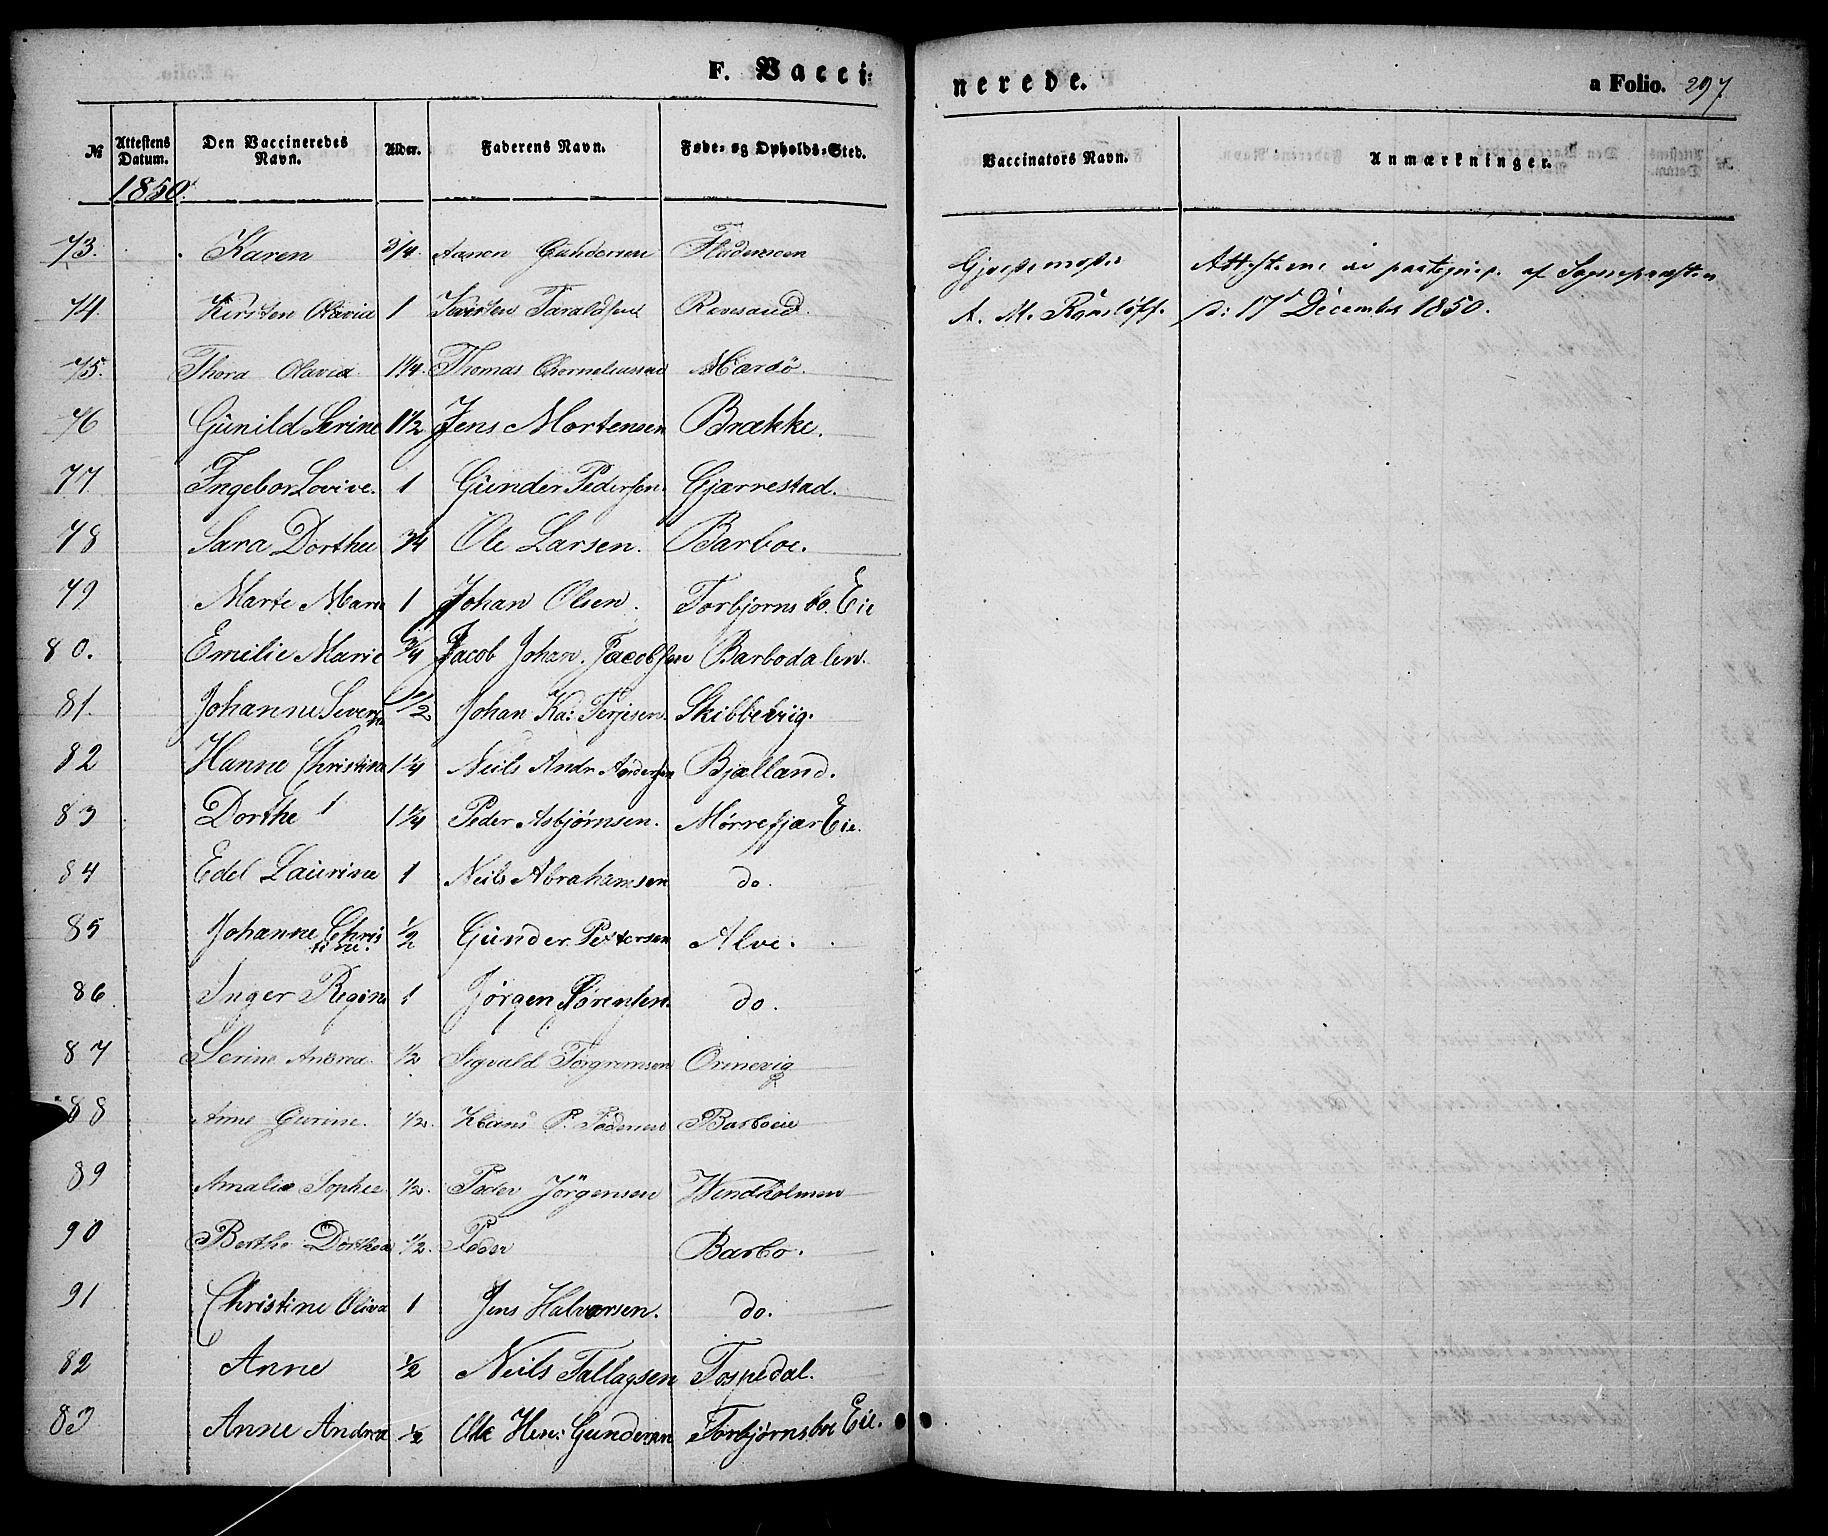 F. Vacci: nerede. a Folio. 297
№ Attestens Datum. Den Vaccineredes Navn. Alder. Faderens Navn. Føde- og Opholds-Sted. Vaccinators Navn. Anmærkninger.
1850.
73. Karen 3/4 Aanon Gundersen
74. Kirsten Olavia 1 Taraldsen Revesand.
A. M. d: 17d December 1850.
75. Thora Olavia 1 1/4. Thomas Mærdö.
76 Gunild Serine 1 1/2 Jens Mortensen Brække.
77 Ingebor Lovive. 1 Gunder Pedersen. Gjærrestad.
78 Sara Dorthee 3/4 Ole Larsen. Barboe.
79 Marte Marie 1 Johan Olsen. Torbjørnsbo. Eie
80. Emilie Marie 3/4 Jacob Johan. Jacobsen Barbodalen.
81. Johanne 1 1/2 Johan Ka: Terjesen. Skibbevig.
82 Hanne Christine 1 1/4 Neils Andr Andersen Bjelland.
83 Dorthe 1 1/4 Peder Asbjørnsen. Mørrefjær Eie.
84 Edel Laurine 1 Neils Abrahamsen do.
85 Johanne Christine. 1/2 Gunder Pettersen Alve.
86 Inger Regine 1 Jörgen Sörensen. do.
87 Serine Andrea 1/2 Sigvald Torgrimsen
88 Anne Gurine. 1/2. P. Pedersen Barboeie
89 Amalie Sophie 1/2. Peder Jörgensen Windholmen
90 Berthe Dorthea 1/2. Peder Barbo.
91 Christine Oliva 1 Jens Halvorsen. do.
82 Anne 1/2 Neils Tallagsen Tospedal.
83 Anne Andrea 1/2 Ole Hen: Gundersen Torbjørnsboe Eie.